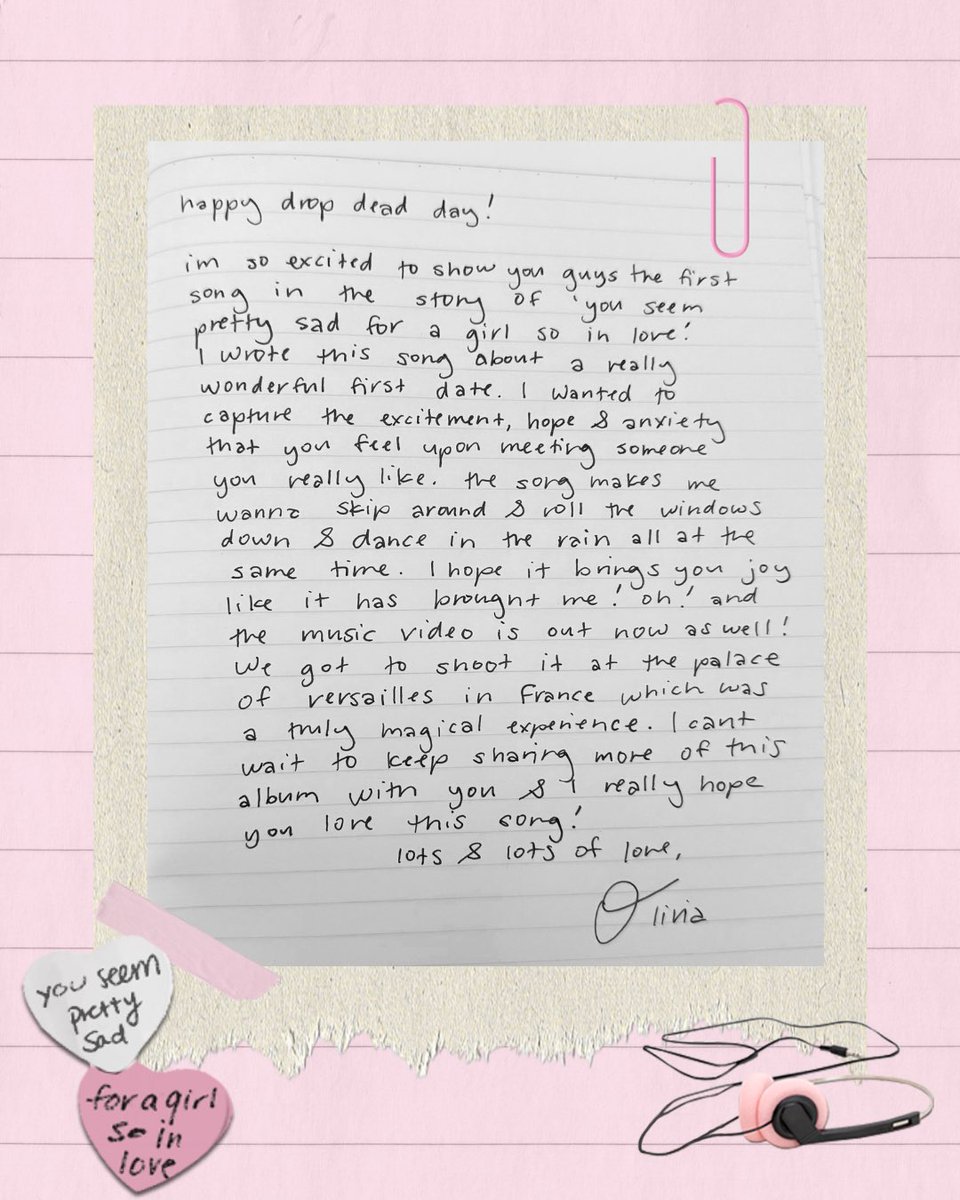 happy drop dead day!
im so excited to show you guys the first
song in the story of 'you seem
pretty sad for a girl so in love'.
I wrote this song about a really
wonderful first date. I wanted to
capture the excitement, hope & anxiety
that you feel upon meeting someone
you really like. the song makes me
wanna skip around & roll the windows
down & dance in the rain all at the
same time. I hope it brings you joy
like it has brought me! oh! and
the music video is out now as well!
We got to shoot it at the palace
of versailles in France which was
a truly magical experience. I cant
wait to keep sharing more of this
album with you & I really hope
you love this song!
lots & lots of love,
Olivia
you seem
pretty
sad
for a girl
so in
love